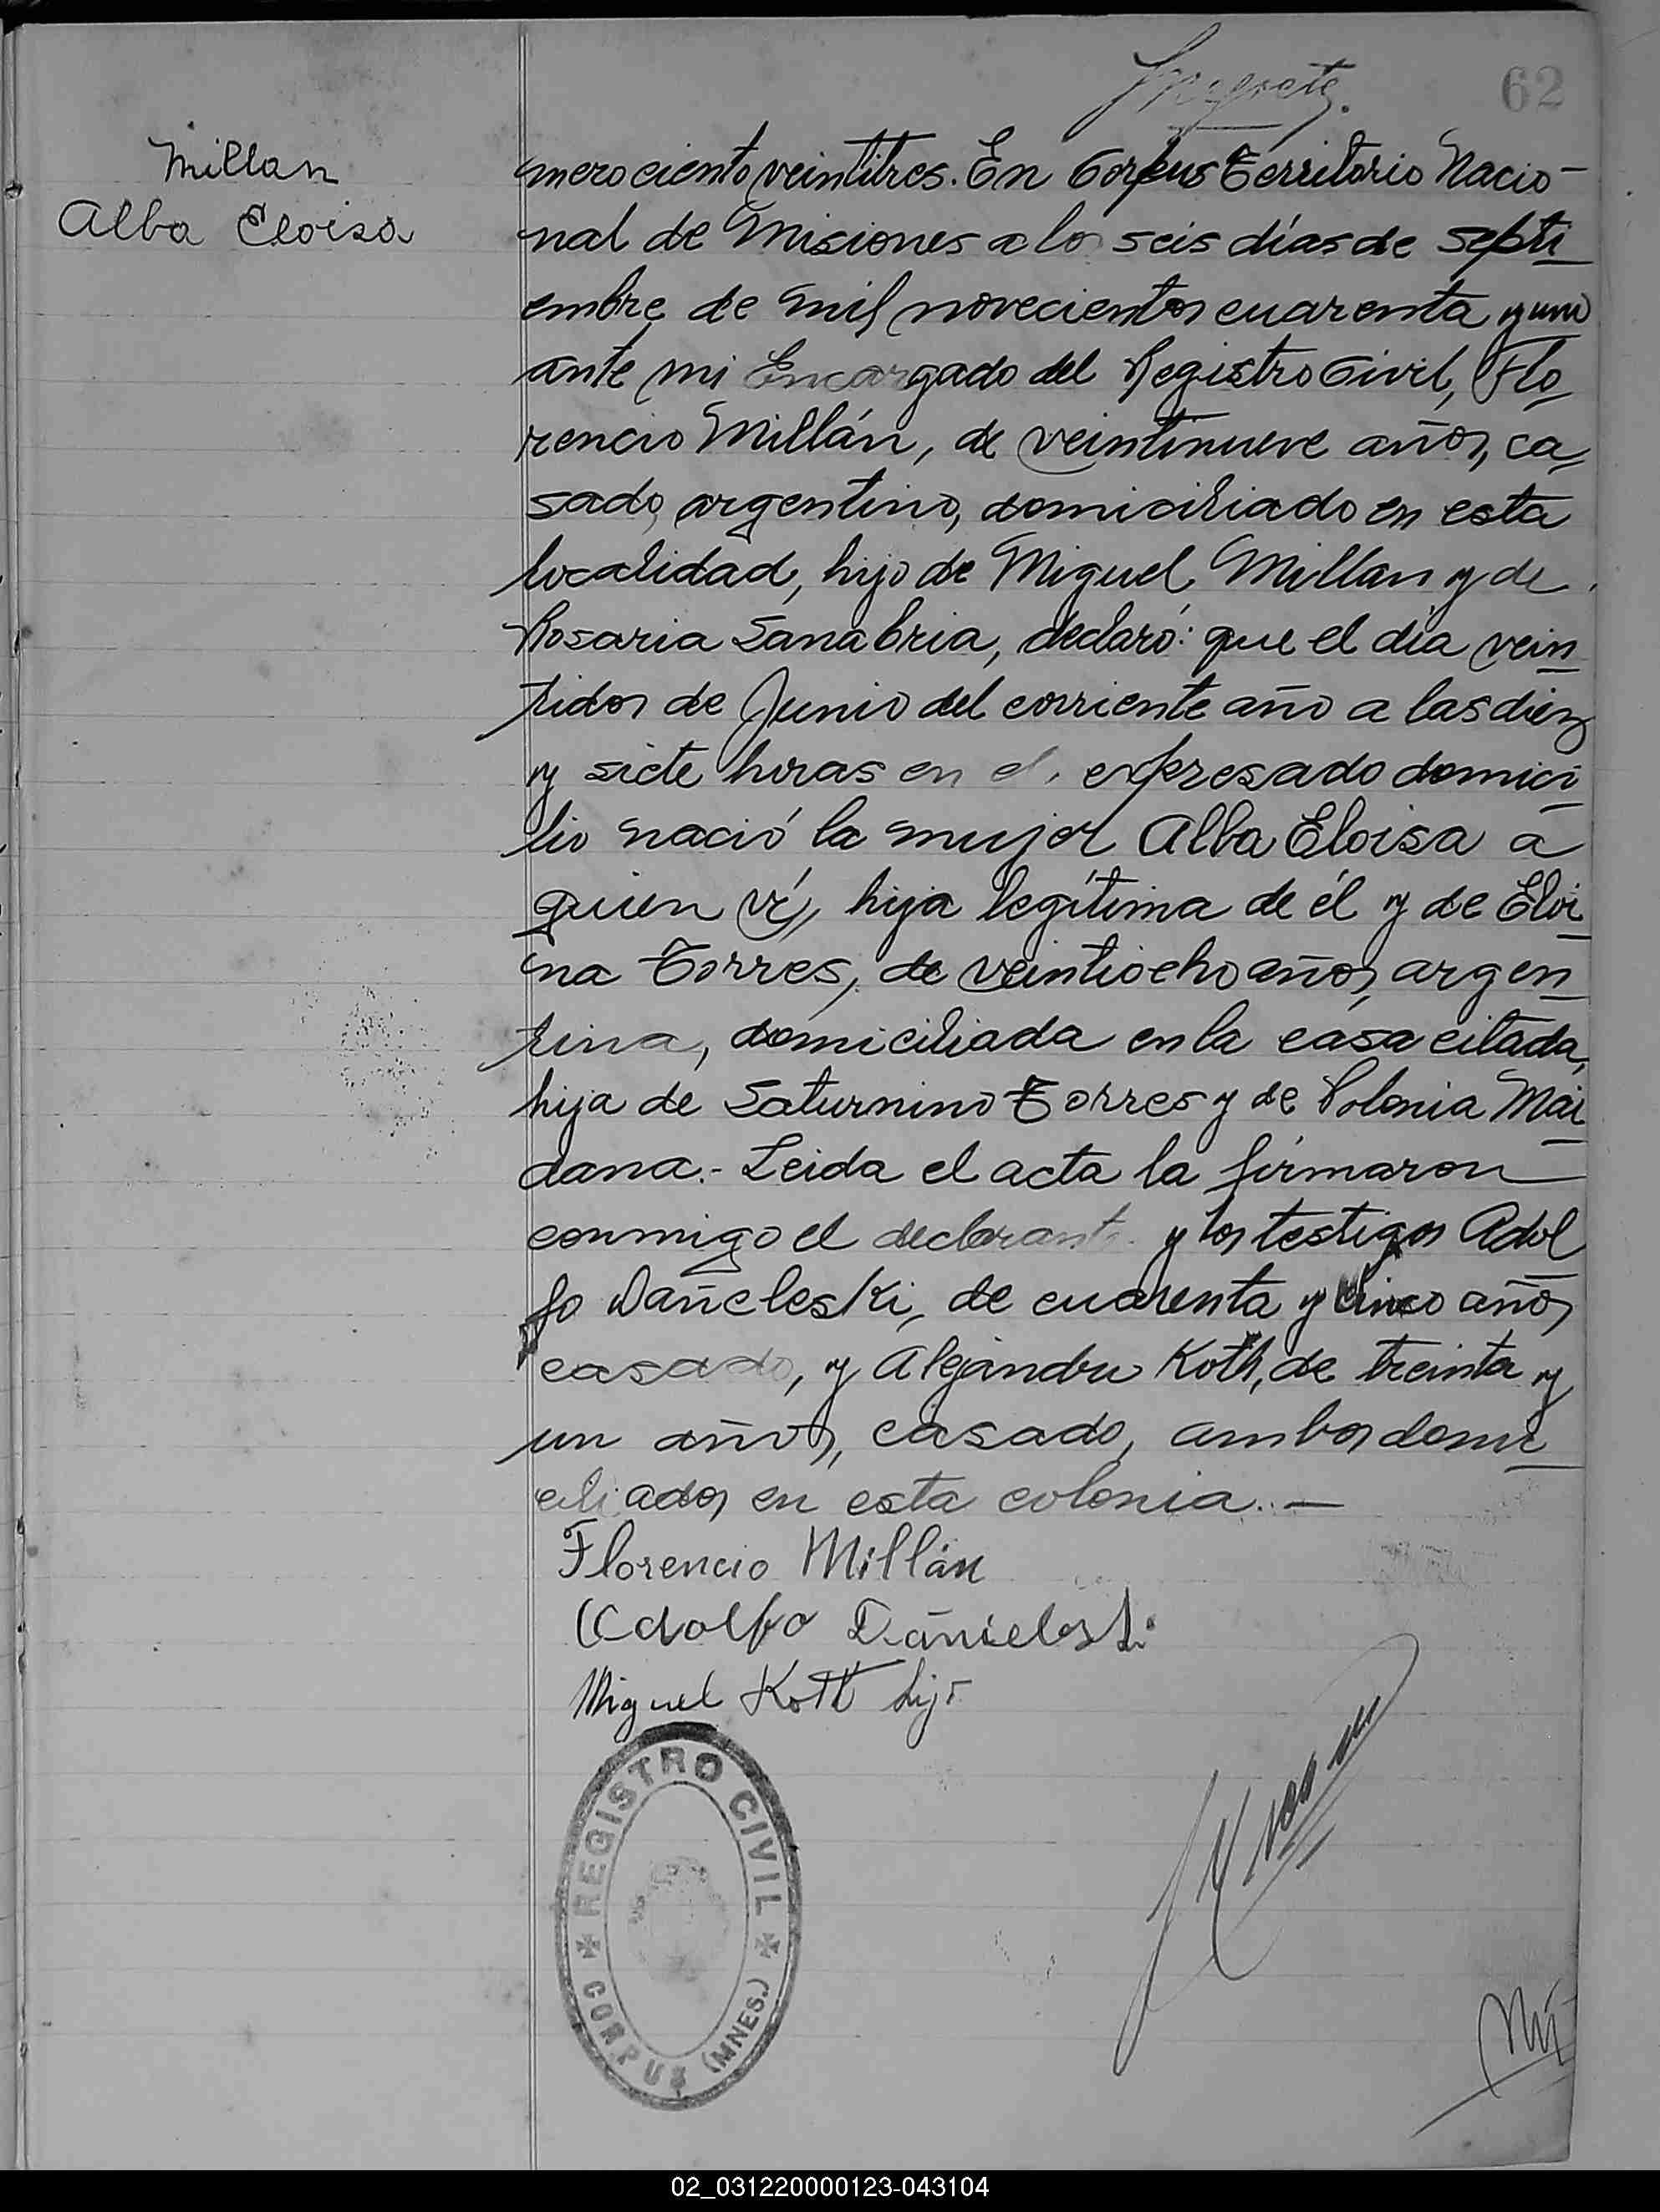 62
Millan
Alba Eloisa
mero ciento veintitres. En Corpus Territorio Nacio-
nal de Misiones a los seis días de septi-
embre de mil novecientos cuarenta y uno
ante mi Encargado del Registro Civil, Flo-
rencio Millán, de veintinueve años, ca-
sado, argentino, domiciliado en esta
localidad, hijo de Miguel Millan y de
Rosaria Sanabria, declaró: que el día vein-
tidos de Junio del corriente año a las diez
y siete horas en el expresado domici-
lio nació la mujer Alba Eloisa a
quien ví, hija legítima de él y de Eloi-
na Torres, de veintiocho años, argen-
tina, domiciliada en la casa citada,
hija de Saturnino Torres y de Polonia Mai-
dana.- Leida el acta la firmaron
conmigo el declarante y los testigos Adol-
fo Dañeleski, de cuarenta y cinco años
casado, y Alejandro Koth, de treinta y
un años, casado, ambos domi-
ciliados en esta colonia.-
Florencio Millán
Adolfo Danieleski
Miguel Koth hijo
REGISTRO CIVIL
CORPUS (MNES.)
02_031220000123-043104